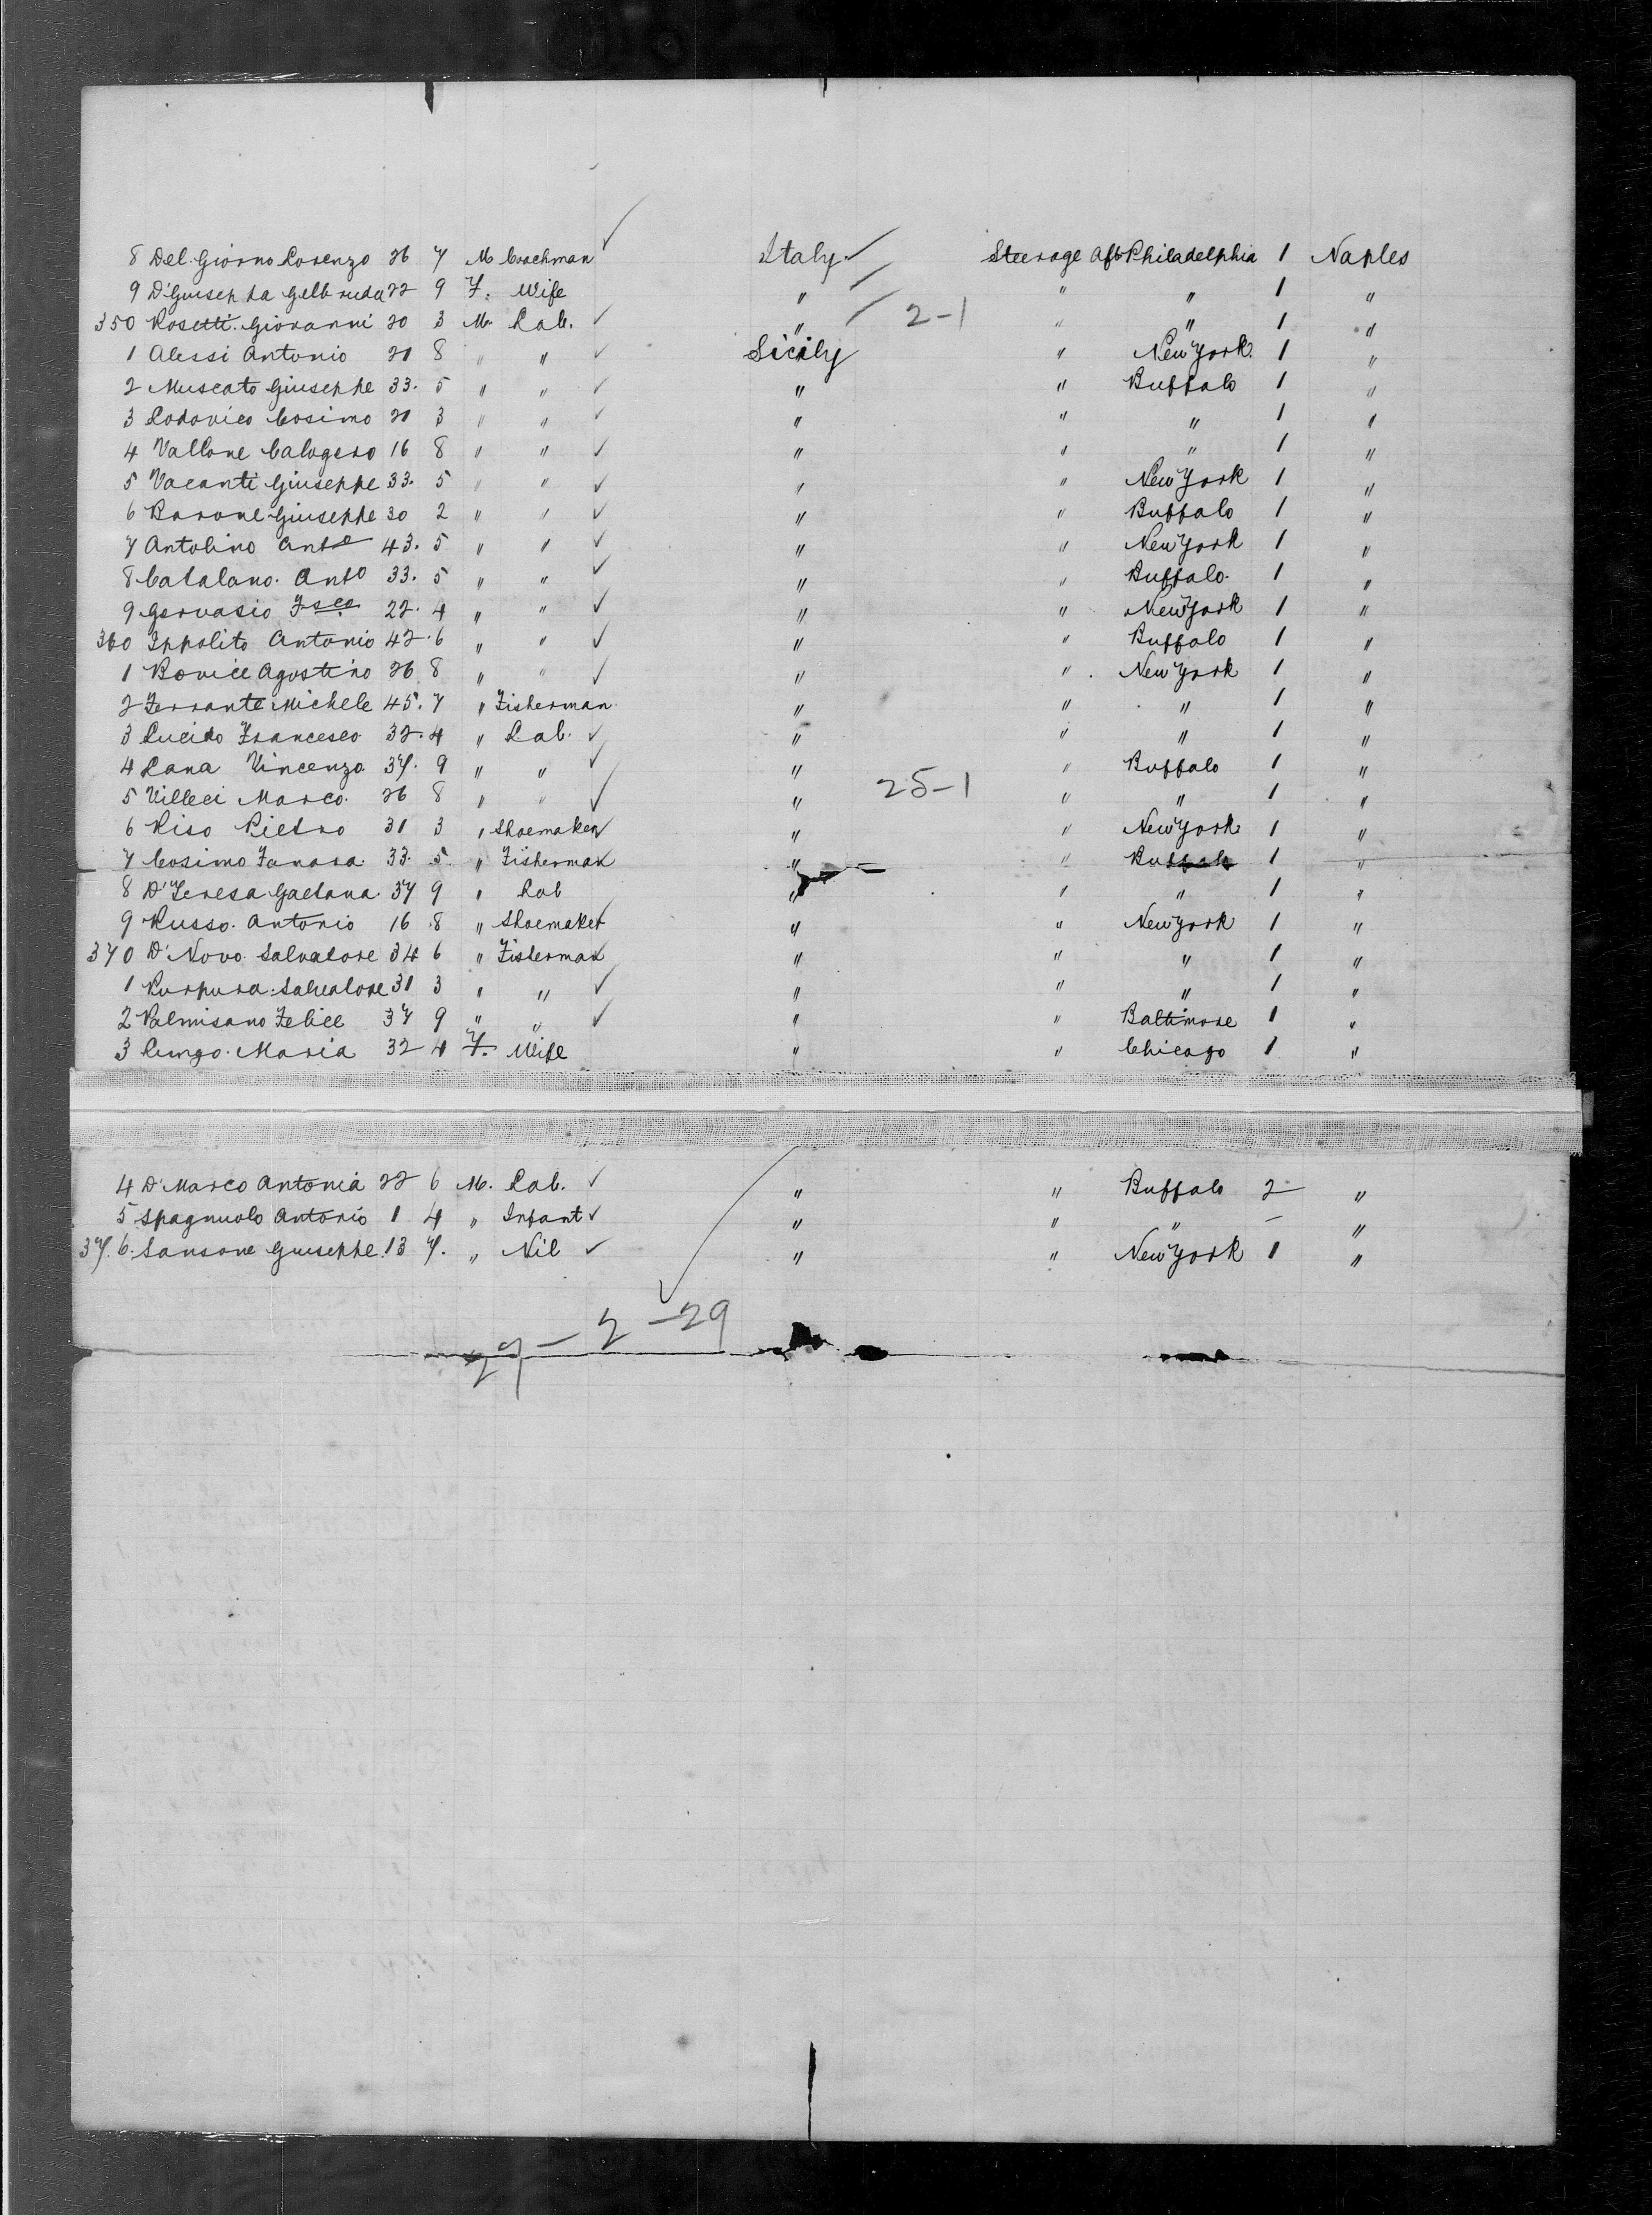 8 Del Giorno Lorenzo 26 7 M Coachman ✓ Italy Steerage Aft Philadelphia 1 Naples
9 D'Guiseppa Geltruda 22 9 F. Wife " " " 1 "
350 Rosetti Giovanni 20 3 M. Lab. ✓ " 2-1 " " 1 "
1 Alessi Antonio 21 8 " " ✓ Sicily " New York. 1 "
2 Muscato Giuseppe 33. 5 " " ✓ " " Buffalo 1 "
3 Lodovico Cosimo 21 3 " " ✓ " " " 1 "
4 Vallone Calogero 16 8 " " ✓ " " " 1 "
5 Vacanti Giuseppe 33. 5 " " ✓ " " New York 1 "
6 Barone Giuseppe 30 2 " " ✓ " " Buffalo 1 "
7 Antolino Anto 43. 5 " " ✓ " " New York 1 "
8 Catalano. Anto 33. 5 " " ✓ " " Buffalo. 1 "
9 Gervasio Fsco 22. 4 " " ✓ " " New York 1 "
360 Ippolito Antonio 42. 6 " " ✓ " " Buffalo 1 "
1 Agostino 26 8 " " ✓ " " New York 1 "
2 Ferrante Michele 45. 7 " Fisherman " " " 1 "
3 Lucido Francesco 32. 4 " Lab. ✓ " " " 1 "
4 Lana Vincenzo 37. 9 " " ✓ " " Buffalo 1 "
5 Villeci Marco. 26 8 " " ✓ " 25-1 " " 1 "
6 Riso Pietro 31 3 " Shoemaker ✓ " " New York 1 "
7 Cosimo Fanara 33. 5. " Fisherman " " Buffalo 1 "
8 D'Teresa Gaetana 37 9 " Lab " " " 1 "
9 Russo. Antonio 16 8 " Shoemaker ✓ " " New York 1 "
370 D'Novo. Salvatore 34 6 " Fisherman " " " 1 "
1 Purpura. Salvatore 31 3 " " ✓ " " " 1 "
2 Palmisano Felice 37 9 " " ✓ " " Baltimore 1 "
3 Maria 32 4 F. Wife " " Chicago 1 "
4 D'Marco Antonia 22 6 M. Lab. ✓ " " Buffalo 2 "
5 Spagnuolo Antonio 1 4 " Infant ✓ " " " - "
37. 6. Sansone Guiseppe. 13 7. " Nil ✓ " " New York 1 "
27 - 2 - 29